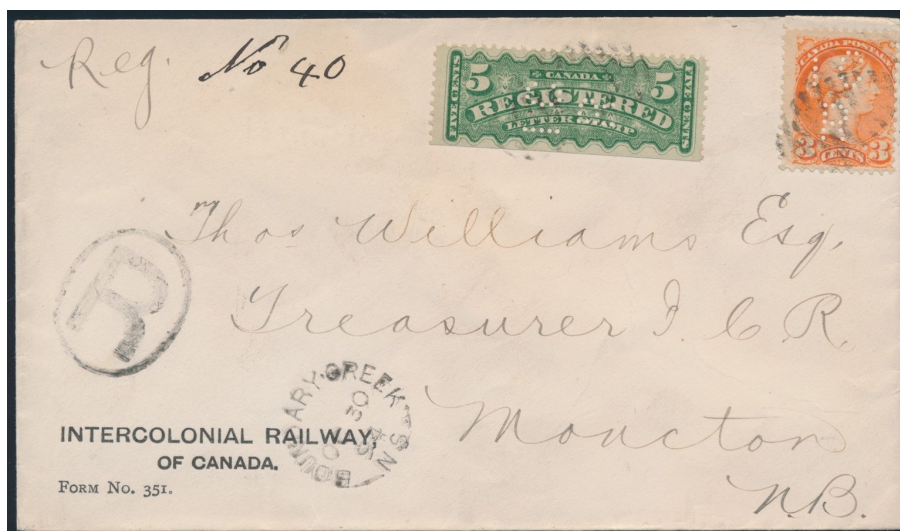 Reg. No 40
5 CANADA 5
FIVE CENTS REGISTERED FIVE CENTS
LETTER STAMP
CANADA POSTAGE
3 CENTS 3
Thos Williams Esq.
Treasurer I C R
R
Moncton
N.B.
BOUNDARY CREEK STN
30
INTERCOLONIAL RAILWAY,
OF CANADA.
FORM NO. 351.